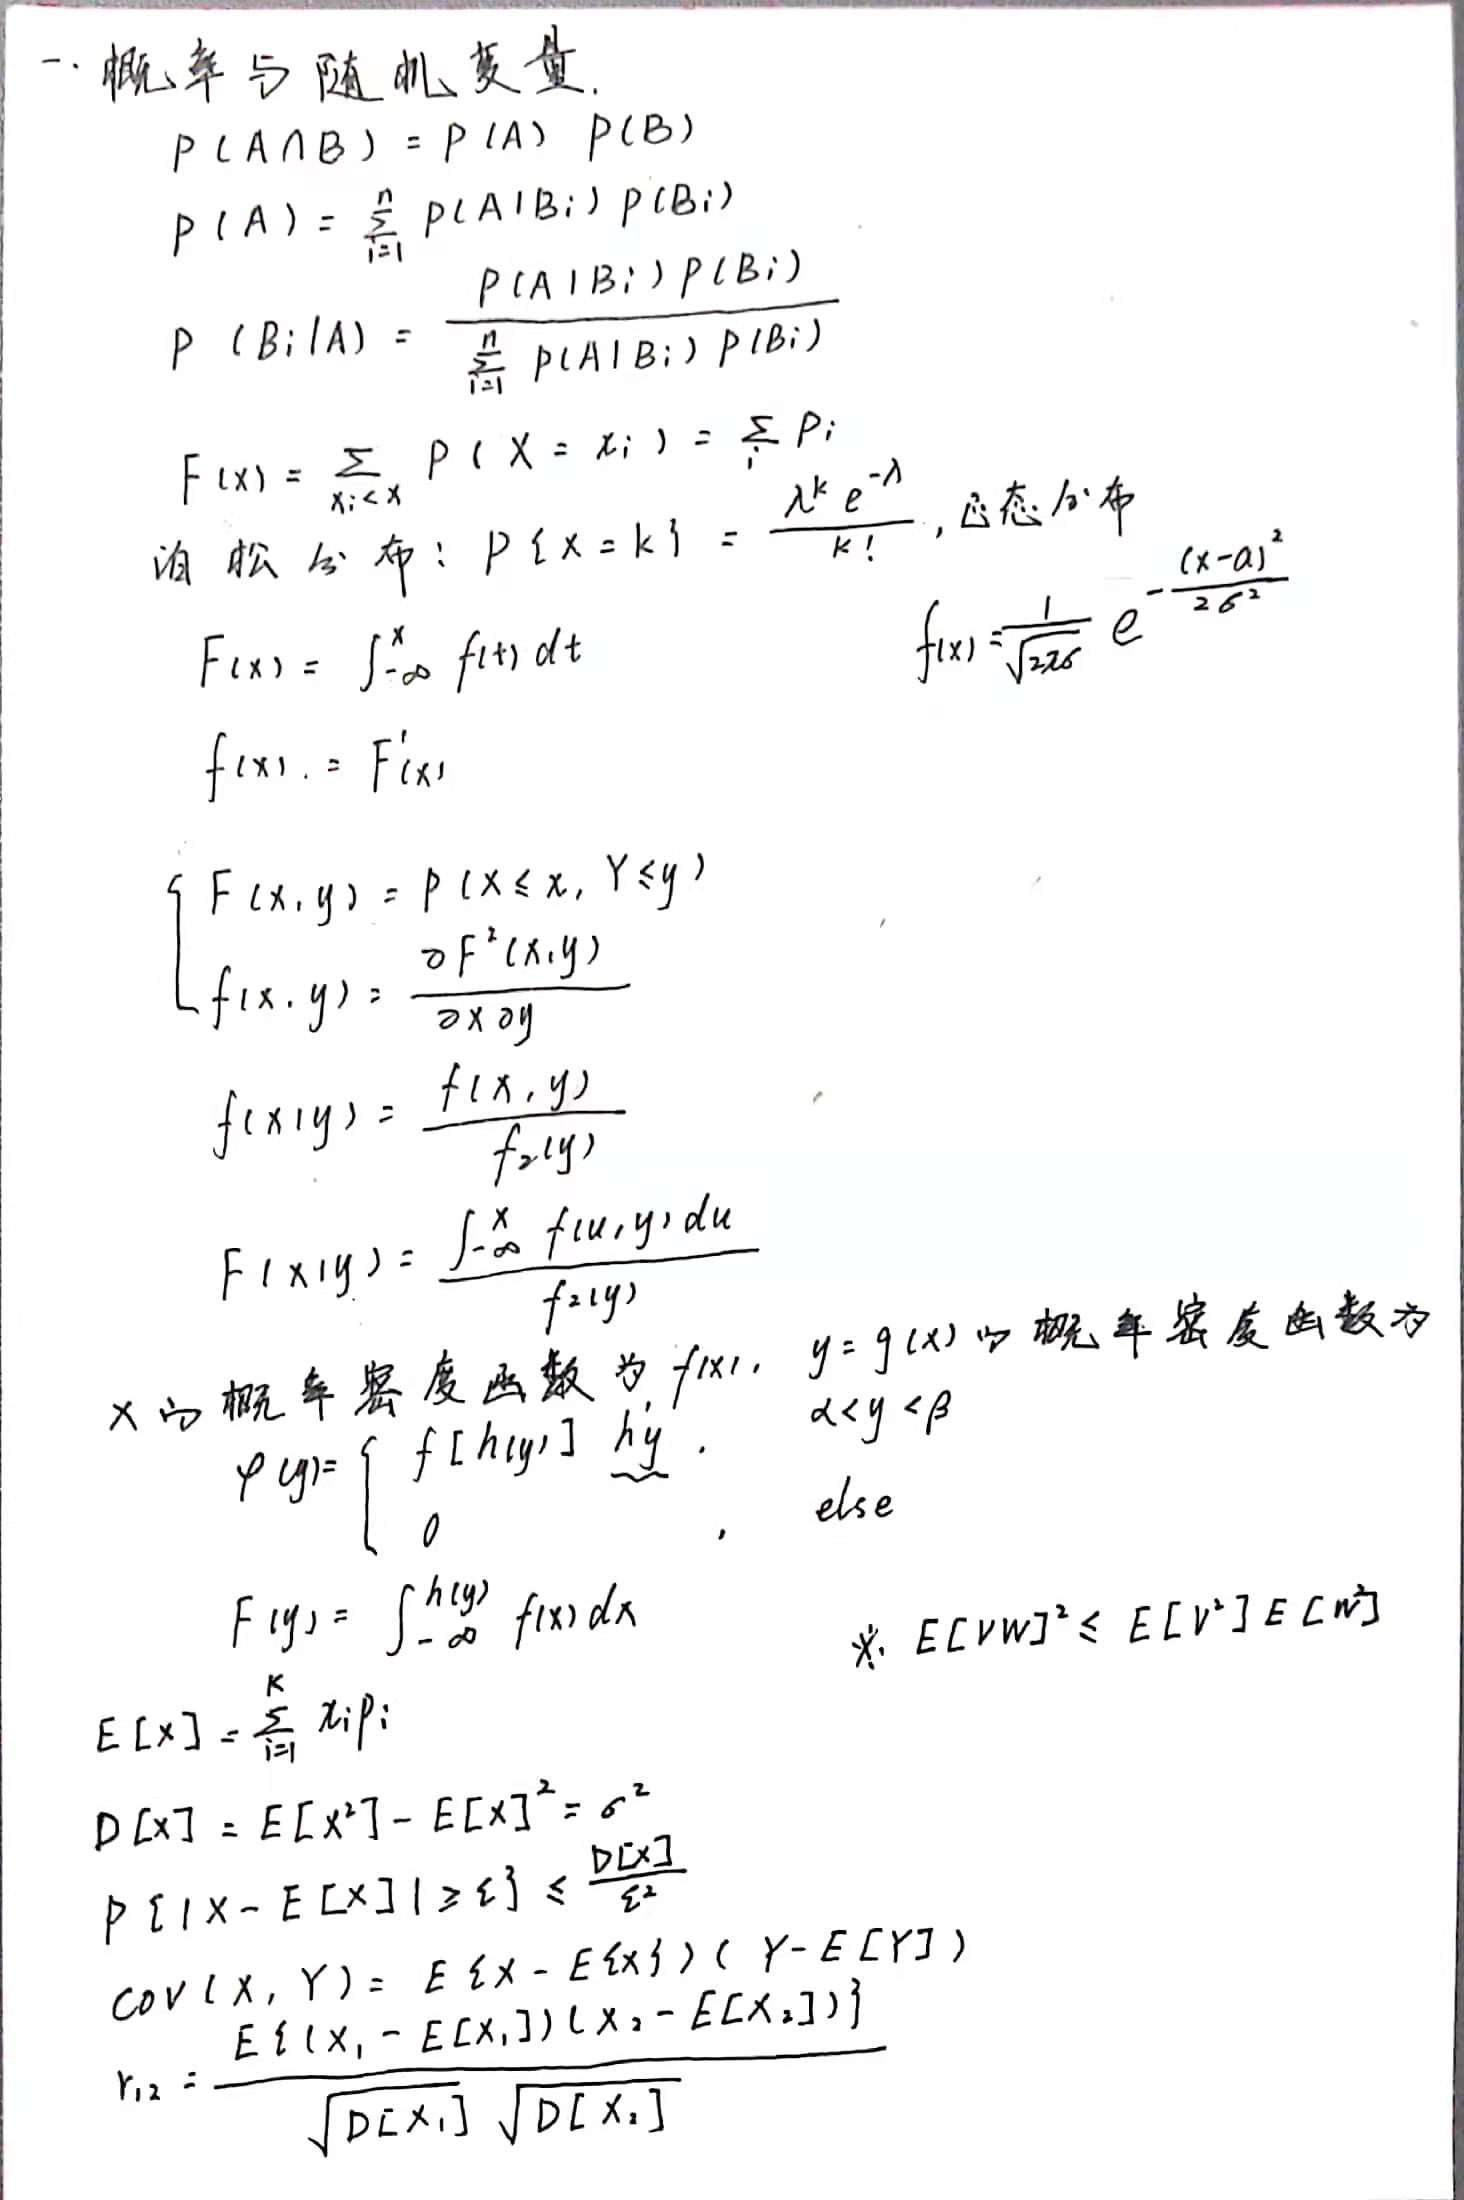 一. 概率与随机变量.
P(A∩B) = P(A) P(B)
P(A) = \sum_{i=1}^{n} P(A|Bi) P(Bi)
P(Bi|A) = \frac{P(A|Bi) P(Bi)}{\sum_{i=1}^{n} P(A|Bi) P(Bi)}
F(x) = \sum_{xi<x} P(X = xi) = \sum_{i} Pi
泊松分布: P{x=k} = \frac{λ^k e^{-λ}}{k!}, 正态分布
F(x) = \int_{-∞}^{x} f(t) dt
f(x) = \frac{1}{\sqrt{2πσ}} e^{-\frac{(x-a)^2}{2σ^2}}
f(x). = F'(x)
F(x,y) = P(X≤x, Y≤y)
f(x,y) = \frac{∂F^2(x,y)}{∂x∂y}
f(x|y) = \frac{f(x,y)}{f_2(y)}
F(x|y) = \frac{\int_{-∞}^{x} f(u,y) du}{f_2(y)}
X的概率密度函数为f(x), y=g(x)的概率密度函数为
φ(y)= { f[h(y)] h'y, α<y<β
0, else
F(y) = \int_{-∞}^{h(y)} f(x) dx
※. E[VW]^2 ≤ E[V^2] E[W^2]
E[X] = \sum_{i=1}^{K} xipi
D[X] = E[X^2] - E[X]^2 = σ^2
P{|X-E[X]|≥ε} ≤ \frac{D[X]}{ε^2}
COV(X, Y) = E{X-E{X})(Y-E[Y])
r_{12} = \frac{E{(X_1-E[X_1])(X_2-E[X_2])}}{\sqrt{D[X_1]} \sqrt{D[X_2]}}